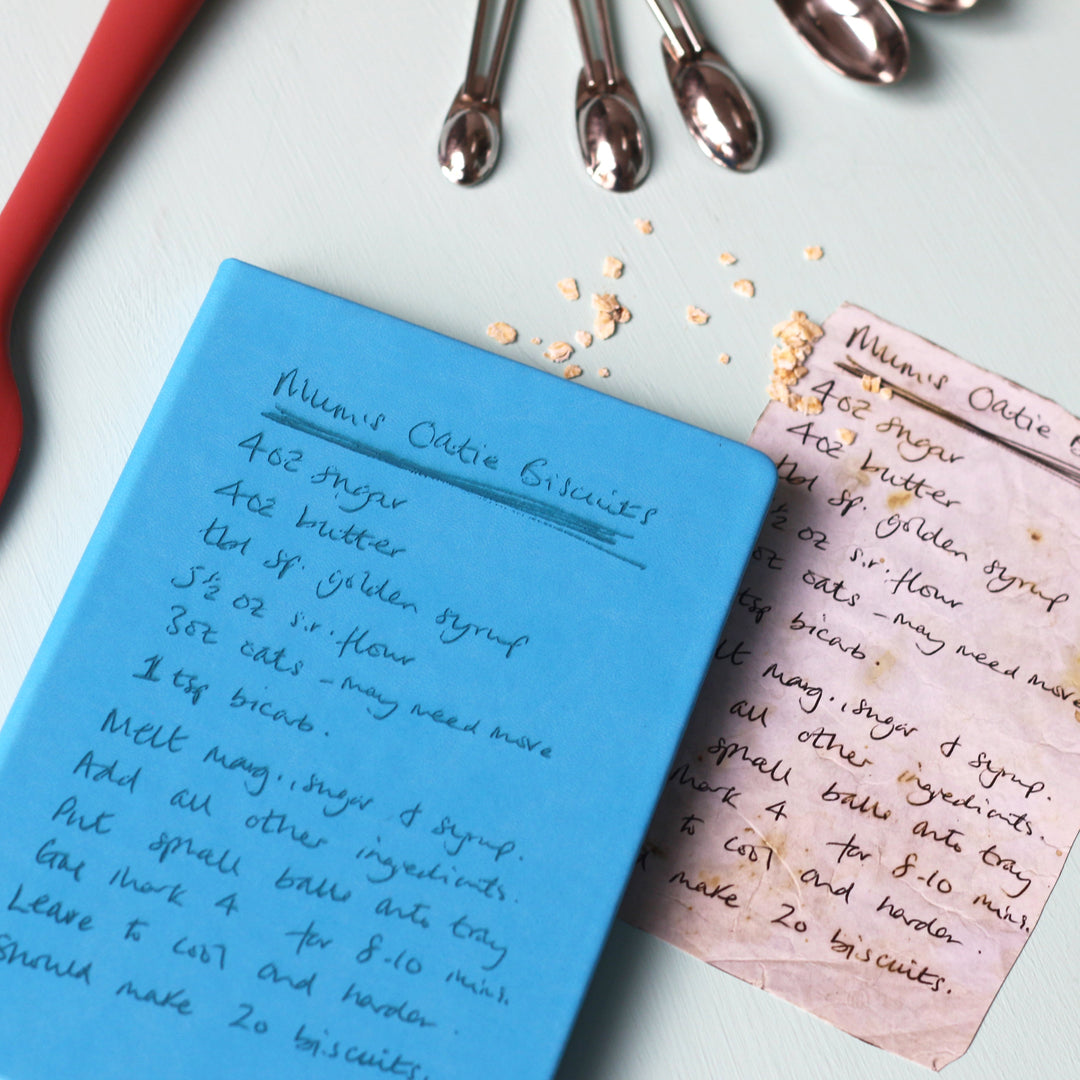 Mum's Oatie Biscuits
4oz sugar
4oz butter
tbl sp. golden syrup
5½ oz s.r. flour
3oz oats - may need more
1 tsp bicarb.
Melt marg., sugar & syrup.
Add all other ingredients.
Put small balls onto tray
Gas Mark 4 for 8-10 mins.
Leave to cool and harden.
Should make 20 biscuits.
Mum's Oatie B
4oz sugar
4oz butter
tbl sp. golden syrup
½ oz s.r. flour
oz oats - may need more
tsp bicarb.
lt marg., sugar & syrup.
all other ingredients.
small balls onto tray
Mark 4 for 8-10 mins.
to cool and harden.
make 20 biscuits.